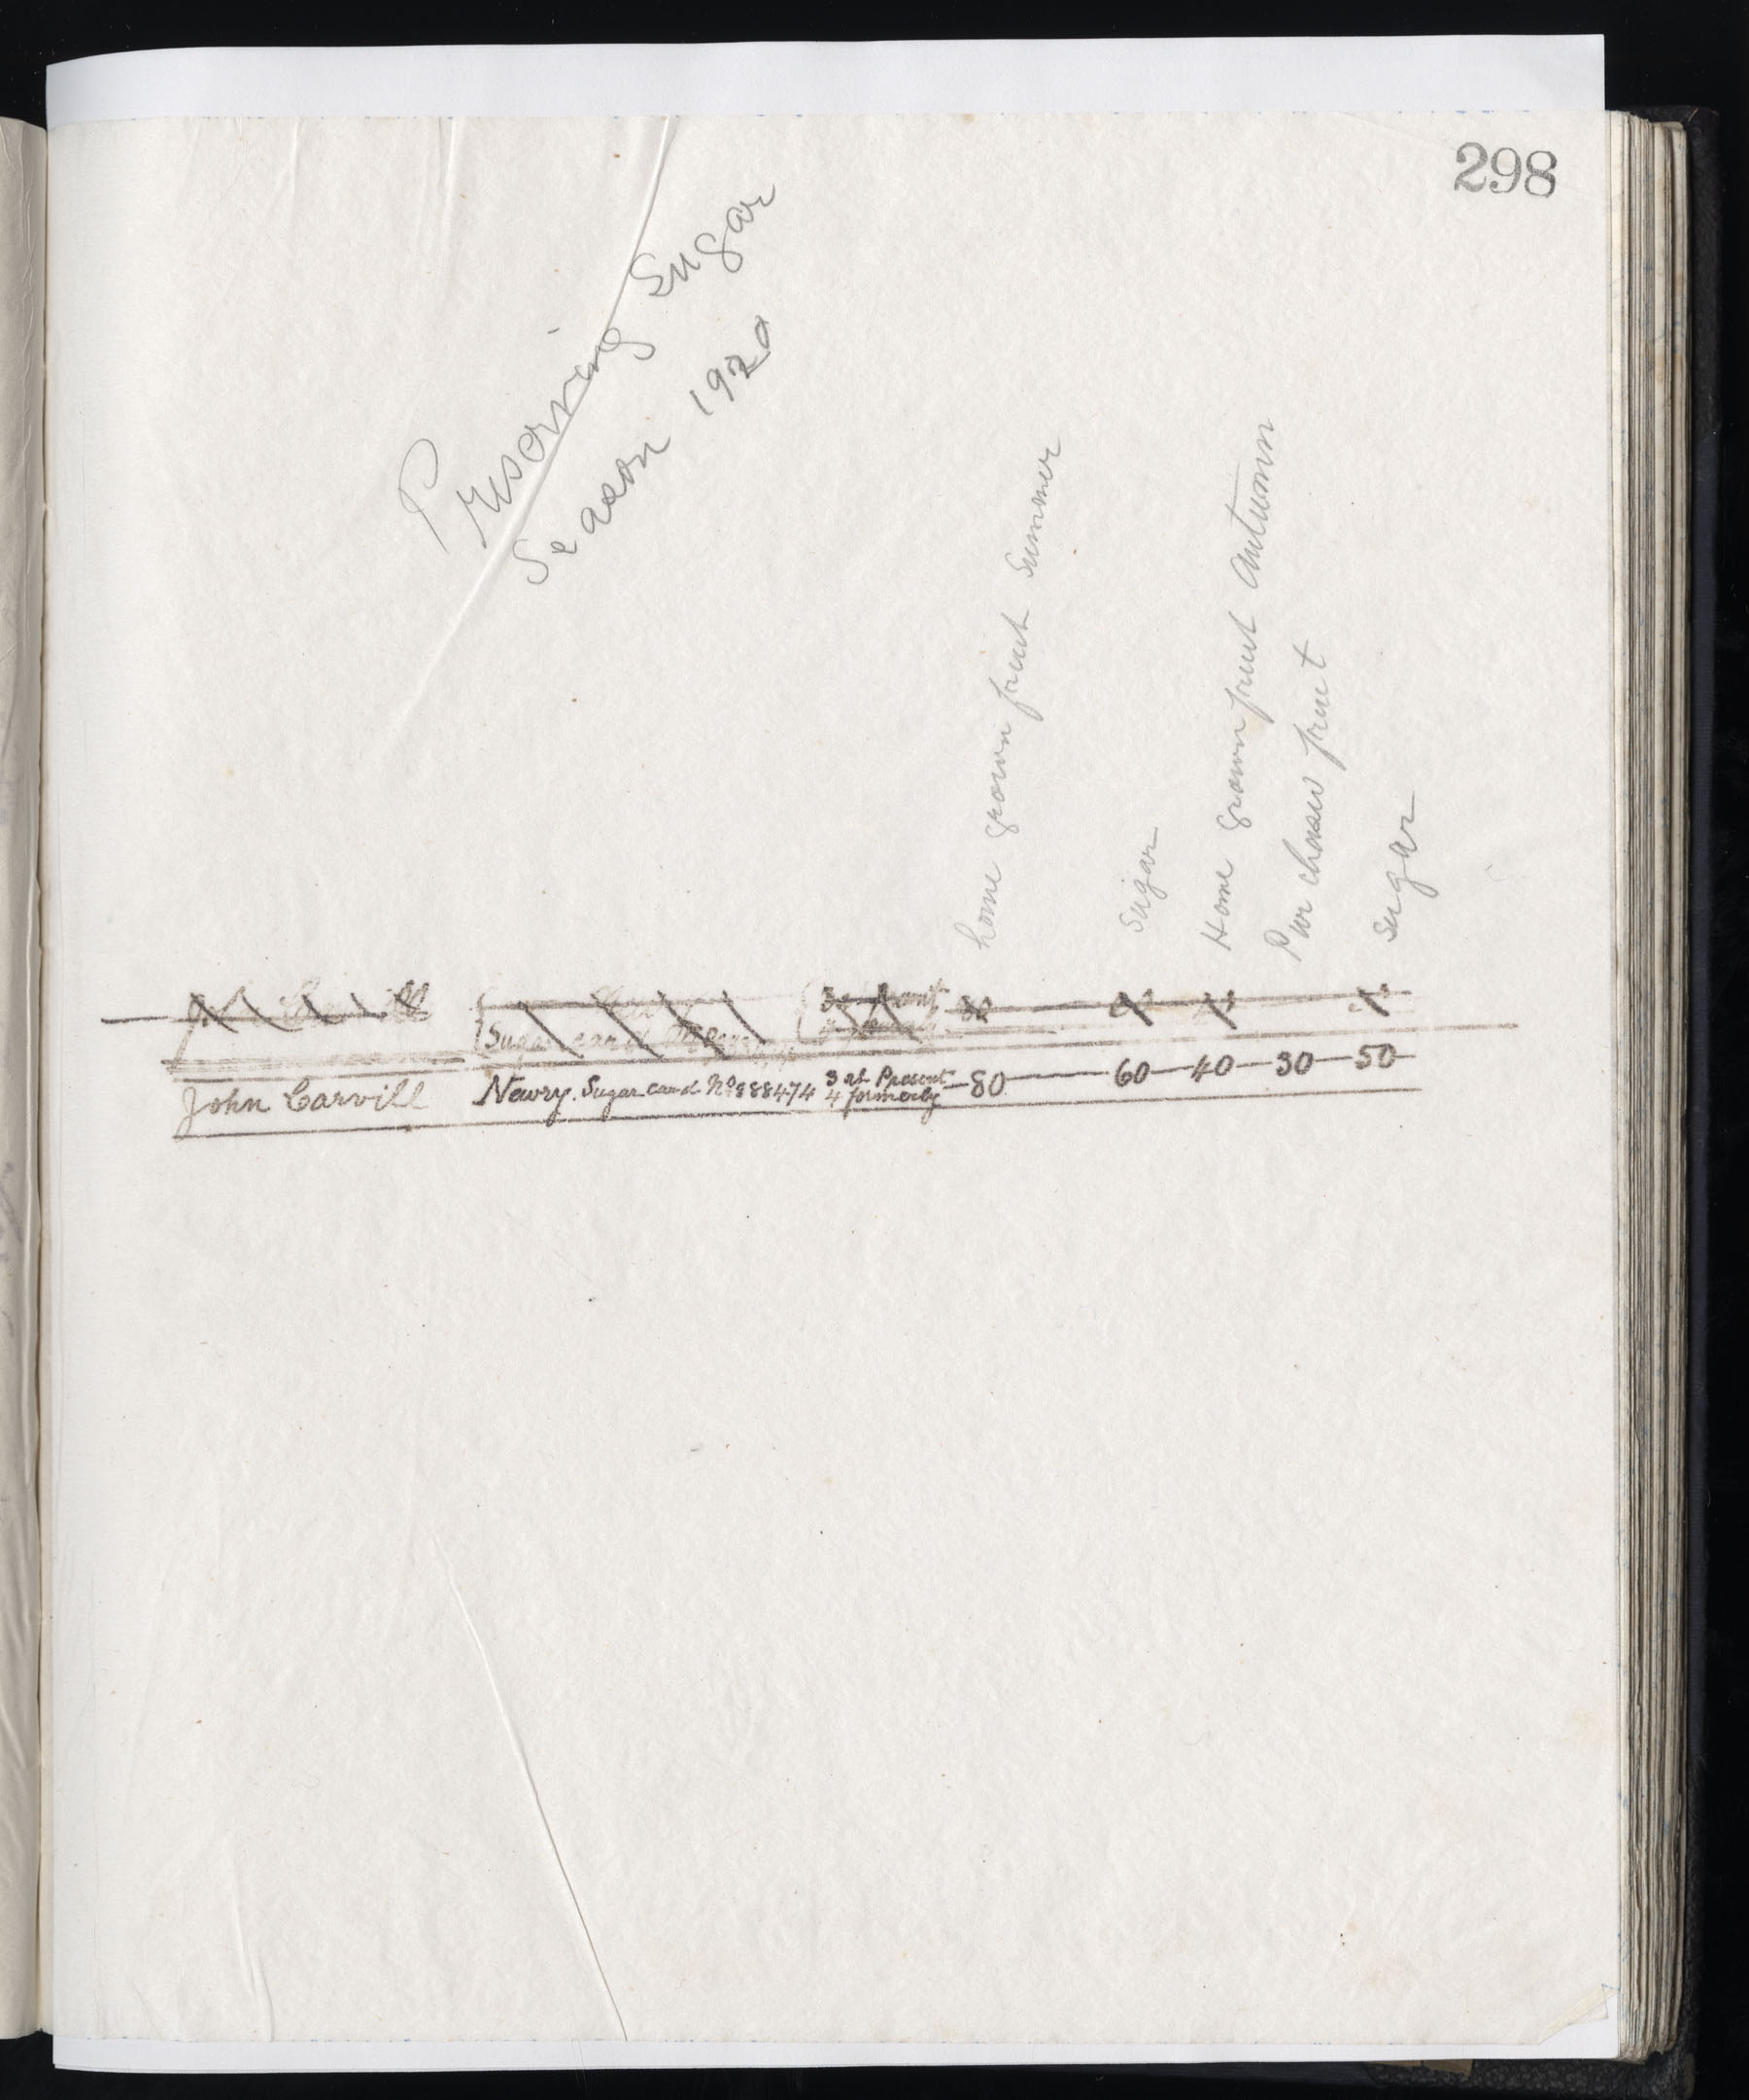 298
Preserving Sugar
Season 1920
home grown fruit Summer
Sugar
Home grown fruit autumn
Purchased fruit
Sugar
Sugar card
John Carvill Newry. Sugar card No 888474 3 at Present 4 formerly - 80 - 60 - 40 - 30 - 50